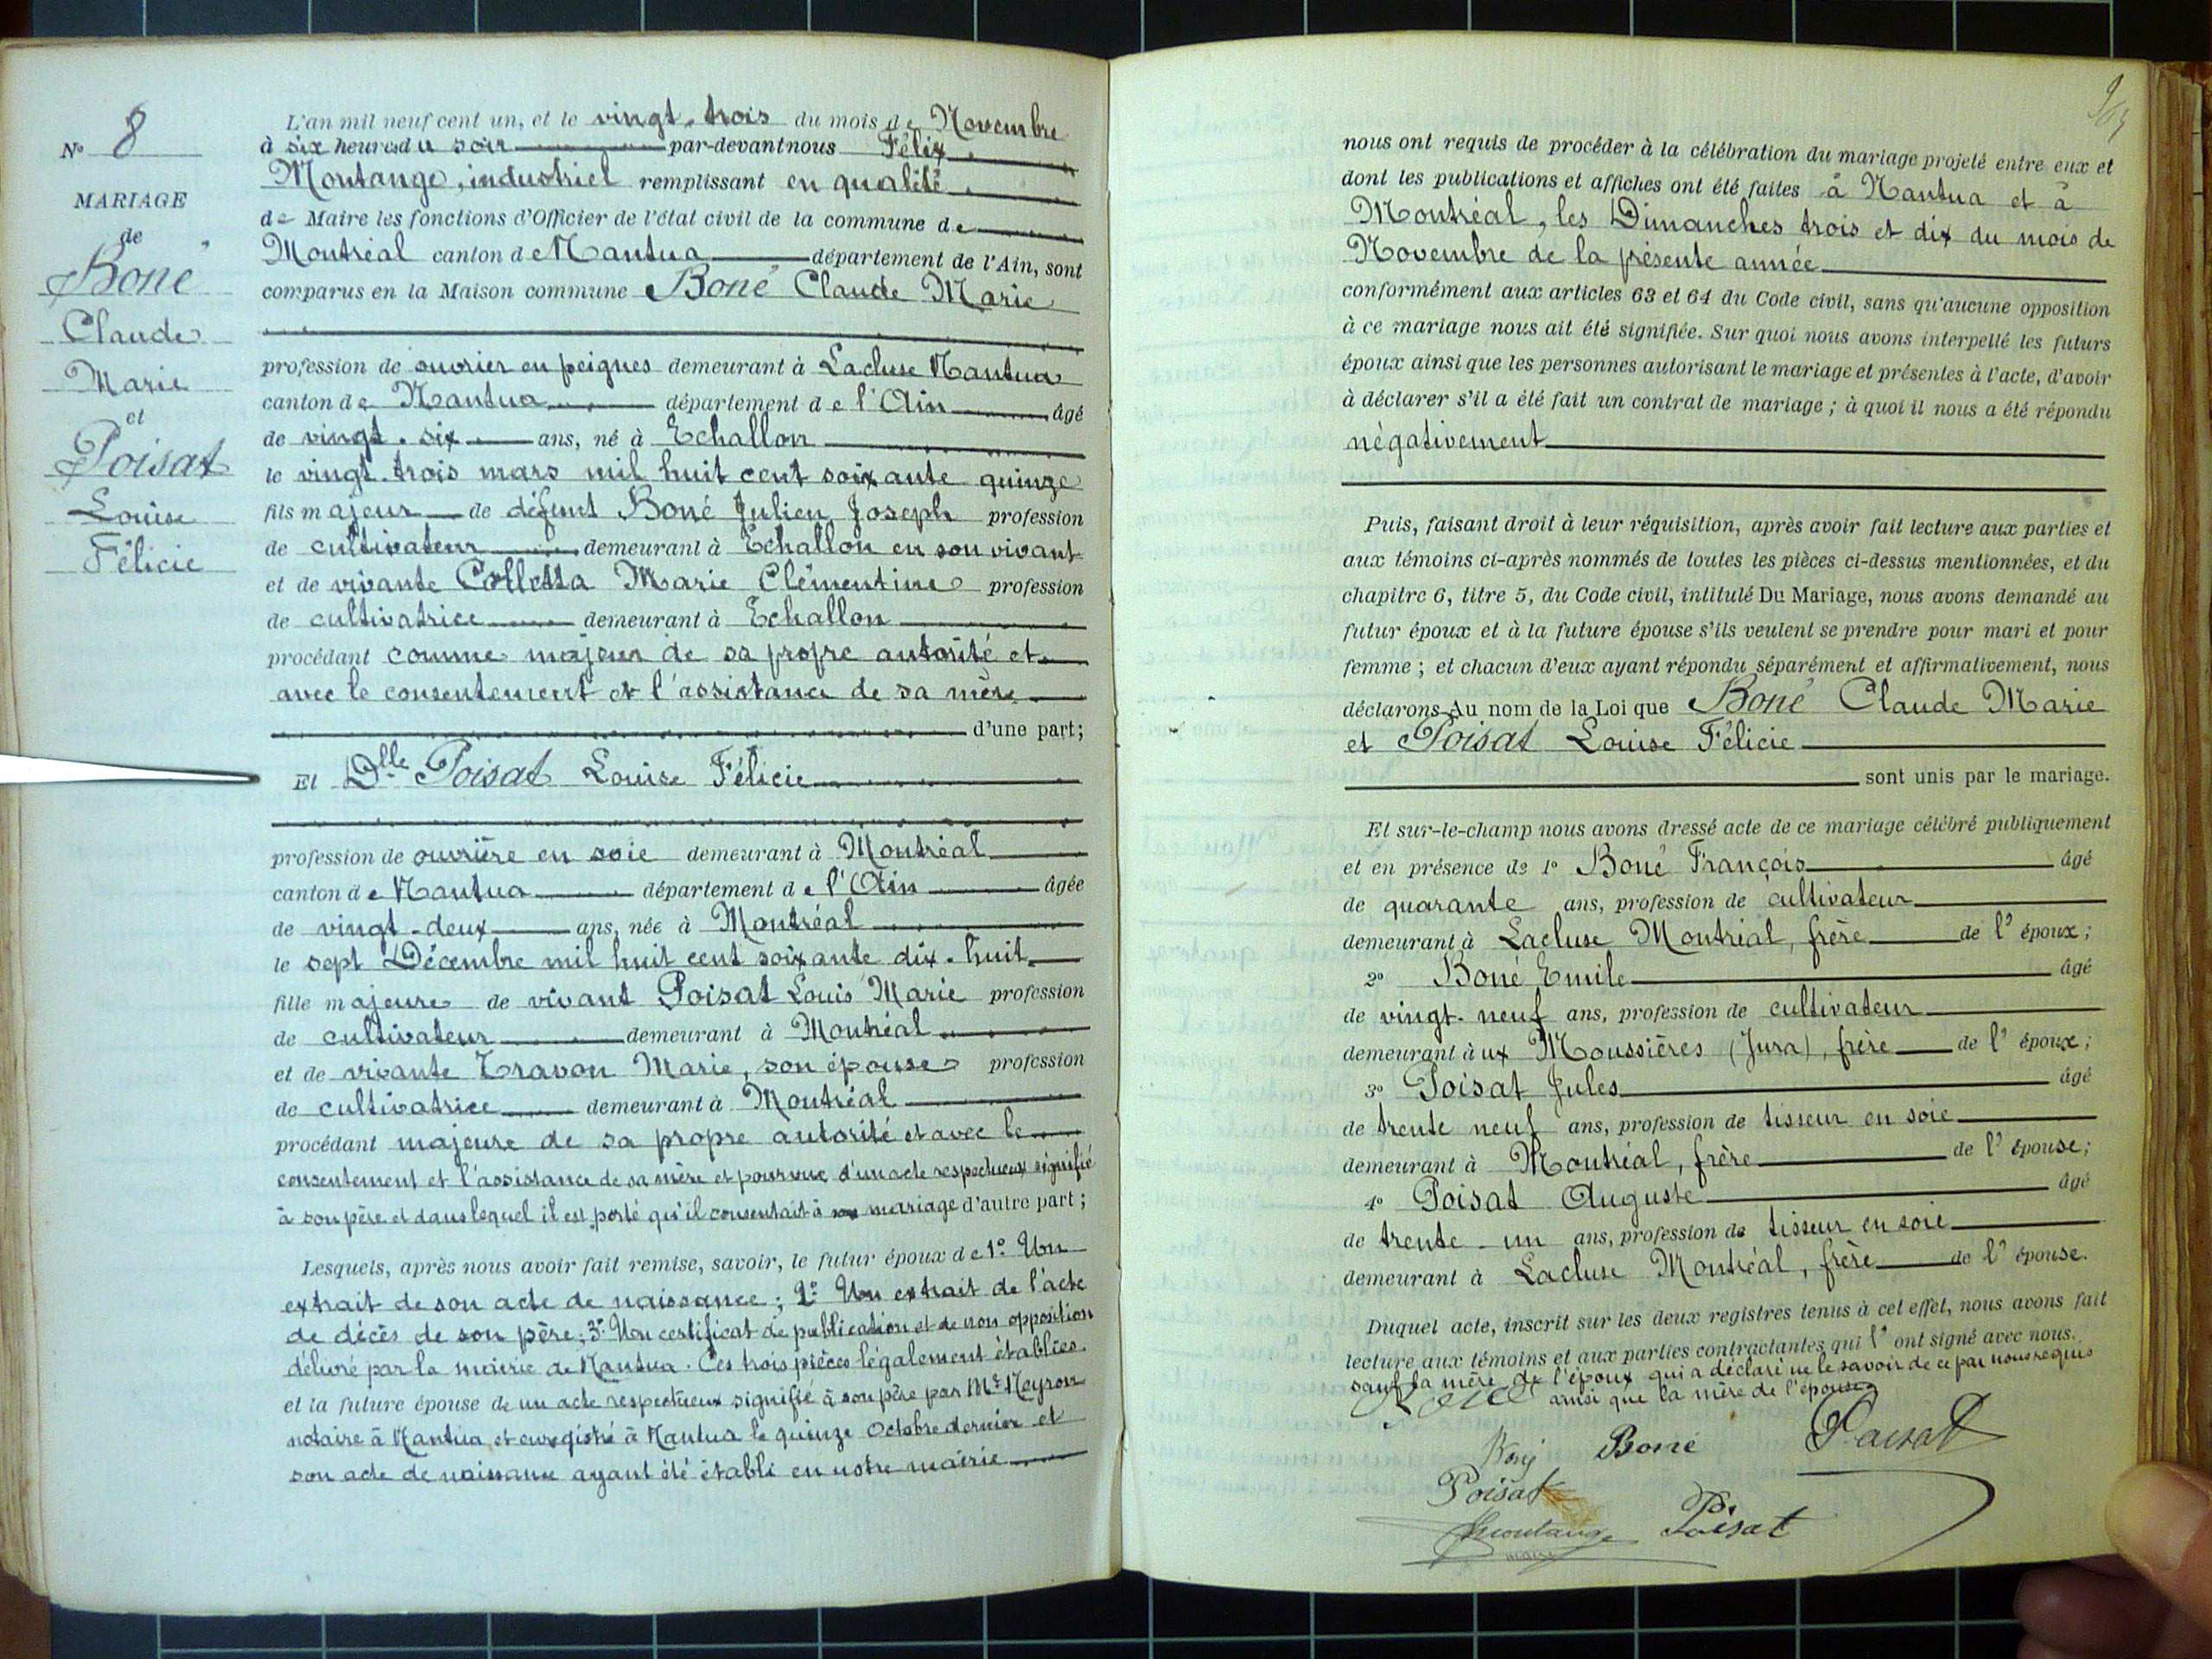 N° 8
MARIAGE
de
Boné
Claude
Marie
et
Poisat
Louise
Félicie
L'an mil neuf cent un, et le vingt-trois du mois de Novembre
à six heures du soir par-devant nous Félix
Montange, industriel remplissant en qualité
de Maire les fonctions d'Officier de l'état civil de la commune de
Montréal canton de Nantua département de l'Ain, sont
comparus en la Maison commune Boné Claude Marie
profession de ouvrier en peignes demeurant à Lacluse Nantua
canton de Nantua département de l'Ain âgé
de vingt-six ans, né à Echallon
le vingt-trois mars mil huit cent soixante quinze
fils majeur de défunt Boné Julien Joseph profession
de cultivateur demeurant à Echallon en son vivant
et de vivante Colletta Marie Clémentine profession
de cultivatrice demeurant à Echallon
procédant comme majeur de sa propre autorité et
avec le consentement et l'assistance de sa mère
d'une part;
Et Dlle Poisat Louise Félicie
profession de ouvrière en soie demeurant à Montréal
canton de Nantua département de l'Ain âgée
de vingt-deux ans, née à Montréal
le sept Décembre mil huit cent soixante dix-huit
fille majeure de vivant Poisat Louis Marie profession
de cultivateur demeurant à Montréal
et de vivante Travon Marie, son épouse profession
de cultivatrice demeurant à Montréal
procédant majeure de sa propre autorité et avec le
consentement et l'assistance de sa mère et pourvue d'un acte respectueux signifié
à son père et dans lequel il est porté qu'il consentait à mariage d'autre part;
Lesquels, après nous avoir fait remise, savoir, le futur époux de 1° Un
extrait de son acte de naissance; 2° Un extrait de l'acte
de décès de son père; 3° Un certificat de publication et de non opposition
délivré par la mairie de Nantua. Ces trois pièces légalement établies
et la future épouse de un acte respectueux signifié à son père par Me Neyron
notaire à Nantua, et enregistré à Nantua le quinze Octobre dernier et
son acte de naissance ayant été établi en notre mairie
nous ont requis de procéder à la célébration du mariage projeté entre eux et
dont les publications et affiches ont été faites à Nantua et à
Montréal, les Dimanches trois et dix du mois de
Novembre de la présente année
conformément aux articles 63 et 64 du Code civil, sans qu'aucune opposition
à ce mariage nous ait été signifiée. Sur quoi nous avons interpellé les futurs
époux ainsi que les personnes autorisant le mariage et présentes à l'acte, d'avoir
à déclarer s'il a été fait un contrat de mariage; à quoi il nous a été répondu
négativement
Puis, faisant droit à leur réquisition, après avoir fait lecture aux parties et
aux témoins ci-après nommés de toutes les pièces ci-dessus mentionnées, et du
chapitre 6, titre 5, du Code civil, intitulé Du Mariage, nous avons demandé au
futur époux et à la future épouse s'ils veulent se prendre pour mari et pour
femme; et chacun d'eux ayant répondu séparément et affirmativement, nous
déclarons Au nom de la Loi que Boné Claude Marie
et Poisat Louise Félicie
sont unis par le mariage.
Et sur-le-champ nous avons dressé acte de ce mariage célébré publiquement
et en présence de 1° Boné François âgé
de quarante ans, profession de cultivateur
demeurant à Lacluse Montréal, frère de l'époux;
2° Boné Emile âgé
de vingt-neuf ans, profession de cultivateur
demeurant à ux Moussières (Jura), frère de l'époux;
3° Poisat Jules âgé
de trente neuf ans, profession de tisseur en soie
demeurant à Montréal, frère de l'épouse;
4° Poisat Auguste âgé
de trente-un ans, profession de tisseur en soie
demeurant à Lacluse Montréal, frère de l'épouse.
Duquel acte, inscrit sur les deux registres tenus à cet effet, nous avons fait
lecture aux témoins et aux parties contractantes qui l'ont signé avec nous.
sauf la mère de l'époux qui a déclaré ne le savoir de ce par nous requis
ainsi que la mère de l'épouse
Boné
Poisat
Poisat
Montange
maire
Poisat